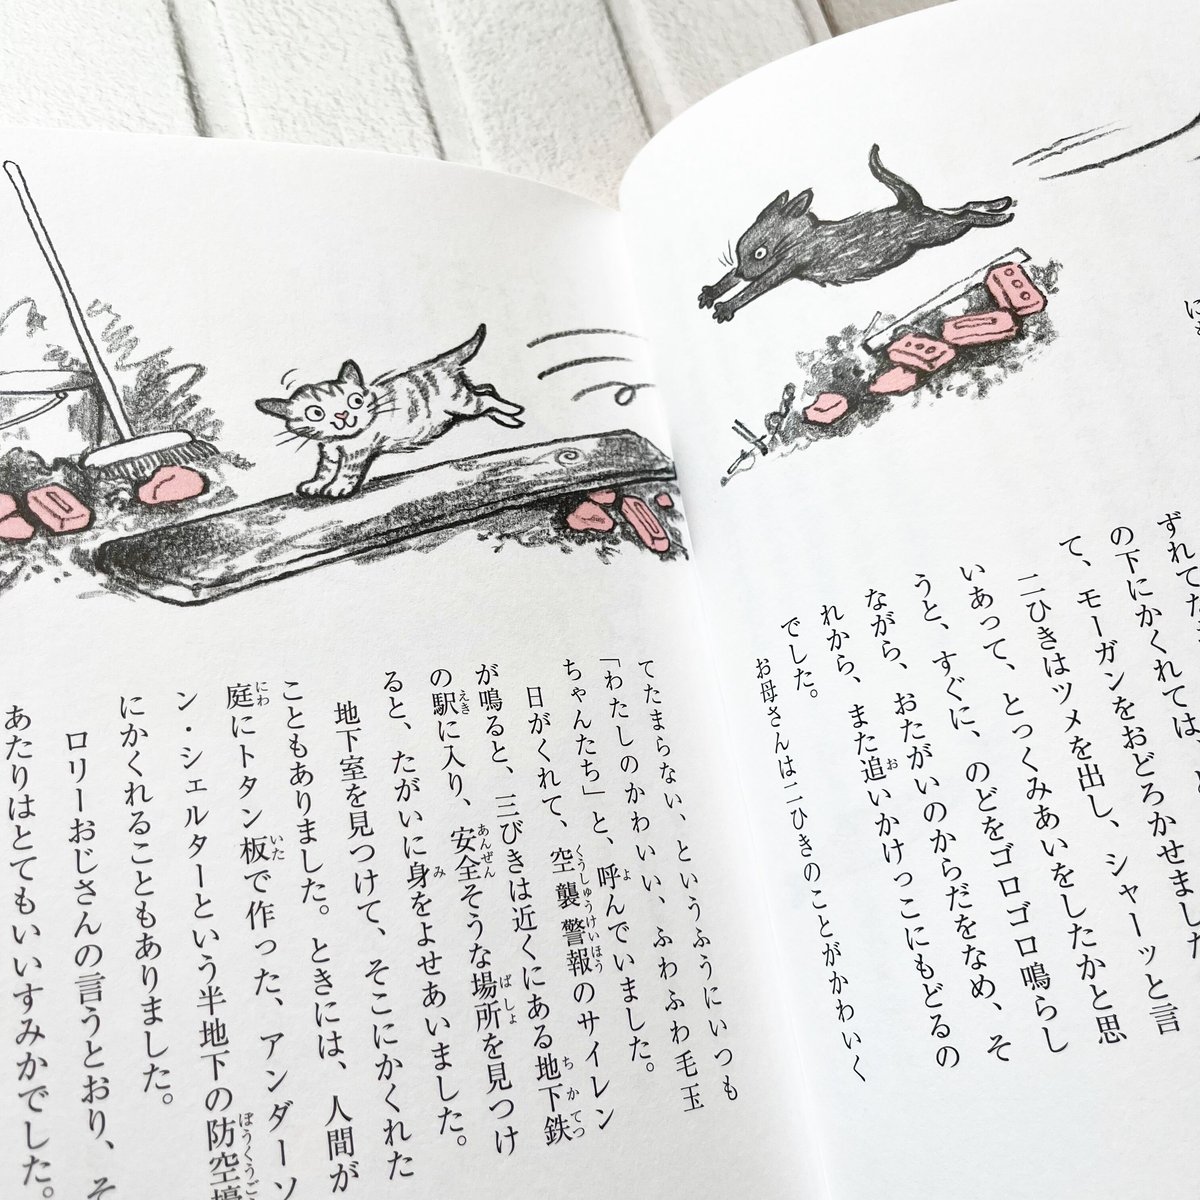 ずれてた
の下にかくれては、
て、モーガンをおどろかせました
二ひきはツメを出し、シャーッと言
いあって、とっくみあいをしたかと思
うと、すぐに、のどをゴロゴロ鳴らし
ながら、おたがいのからだをなめ、そ
れから、また追いかけっこにもどるの
でした。
お母さんは二ひきのことがかわいく
てたまらない、というふうにいつも
「わたしのかわいい、ふわふわ毛玉
ちゃんたち」と、呼んでいました。
日がくれて、空襲警報のサイレン
が鳴ると、三びきは近くにある地下鉄
の駅に入り、安全そうな場所を見つけ
ると、たがいに身をよせあいました。
地下室を見つけて、そこにかくれた
こともありました。ときには、人間が
庭にトタン板で作った、アンダーソ
ン・シェルターという半地下の防空壕
にかくれることもありました。
ロリーおじさんの言うとおり、そ
あたりはとてもいいすみかでした。